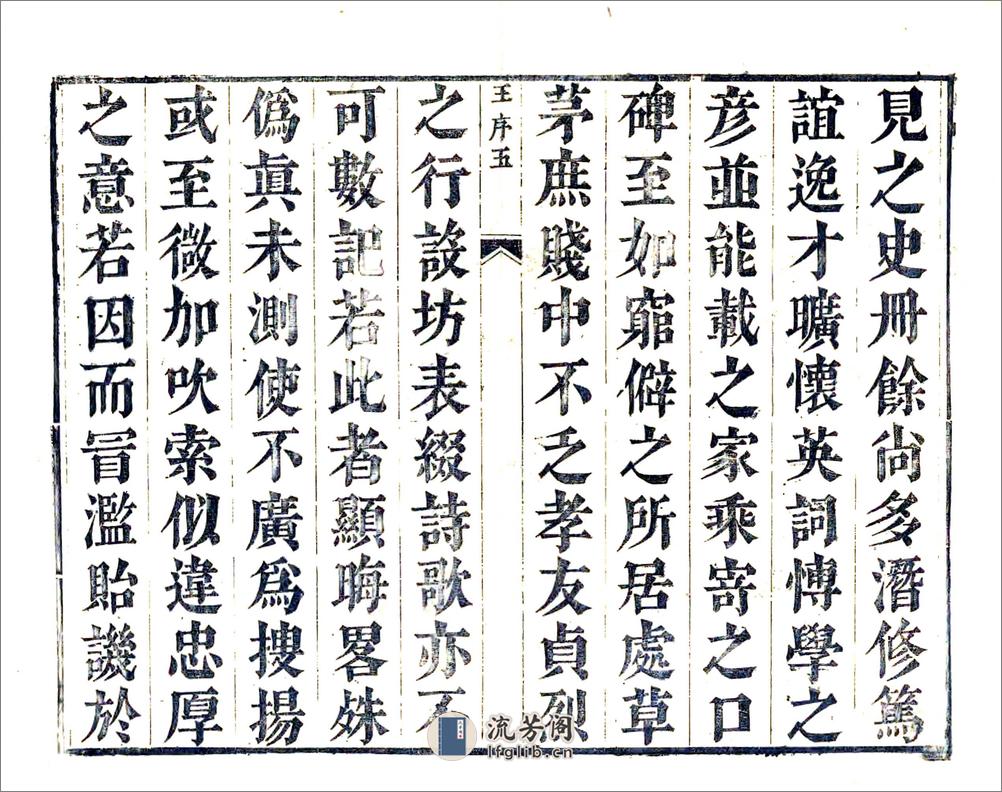 見之史冊餘尚多潛修篤
誼逸才曠懷英詞愽學之
彦並能載之家乘寄之口
碑至如窮僻之所居處草
茅庶賤中不乏孝友貞烈
王序五
之行設坊表綴詩歌亦不
可數記若此者顯晦畧殊
僞眞未測使不廣爲搜揚
或至微加吹索似違忠厚
之意若因而冒濫貽譏於
流芳阁
lfglib.cn